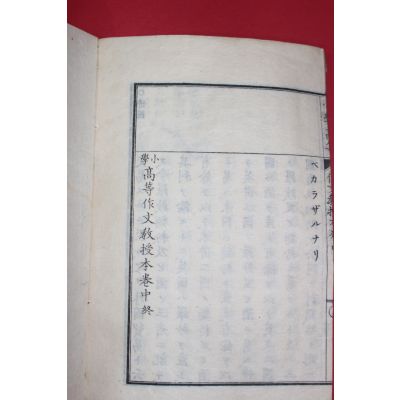 ベカラザルナリ
小學高等作文教授本卷中終